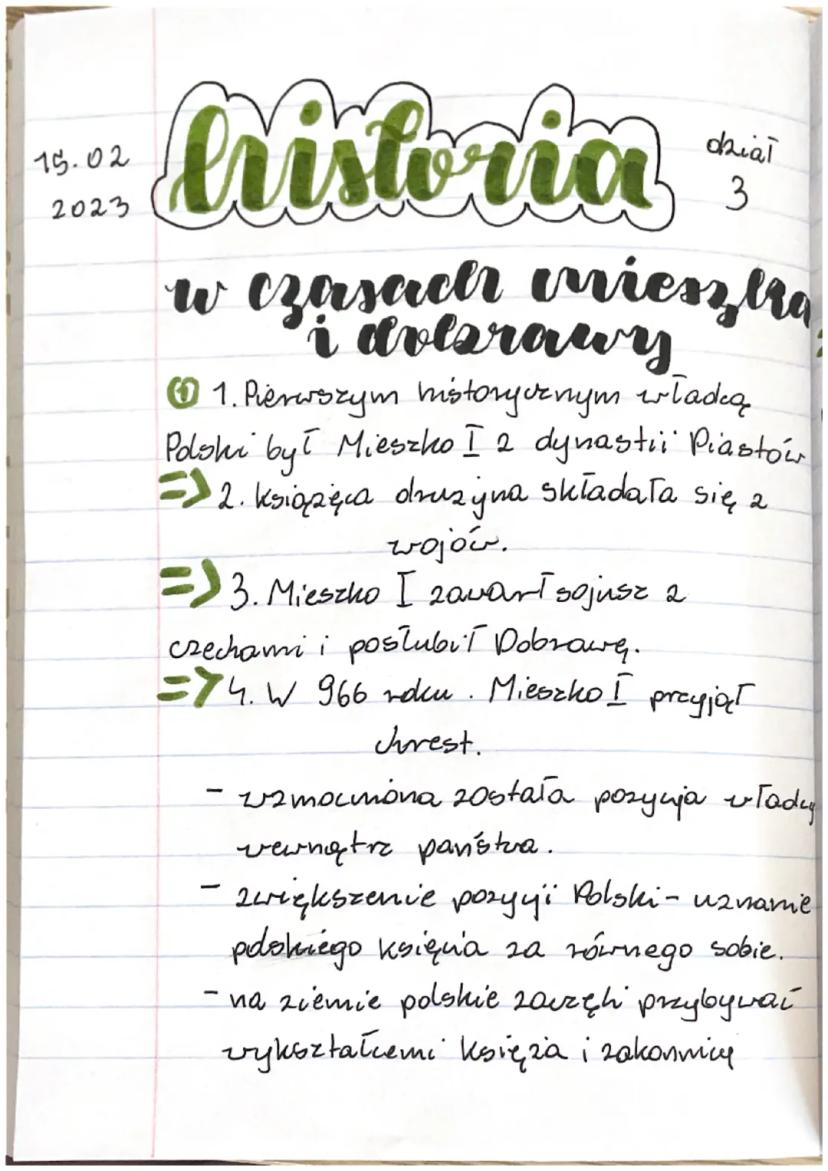 15.02
2023
historia
dział
3
w czasach mieszka
i dobrawy
① 1. Pierwszym historycznym władcą
Polski był Mieszko I z dynastii Piastów
=> 2. książęca drużyna składała się z
wojów.
=> 3. Mieszko I zawarł sojusz z
czechami i poślubił Dobrawę.
=> 4. W 966 roku. Mieszko I przyjął
chrest.
- wzmocniona została pozycja władcy
wewnątrz państwa.
- zwiększenie pozycji Polski - uznanie
polskiego księcia za równego sobie.
- na ziemie polskie zaczęli przybywać
wykształceni księża i zakonnicy